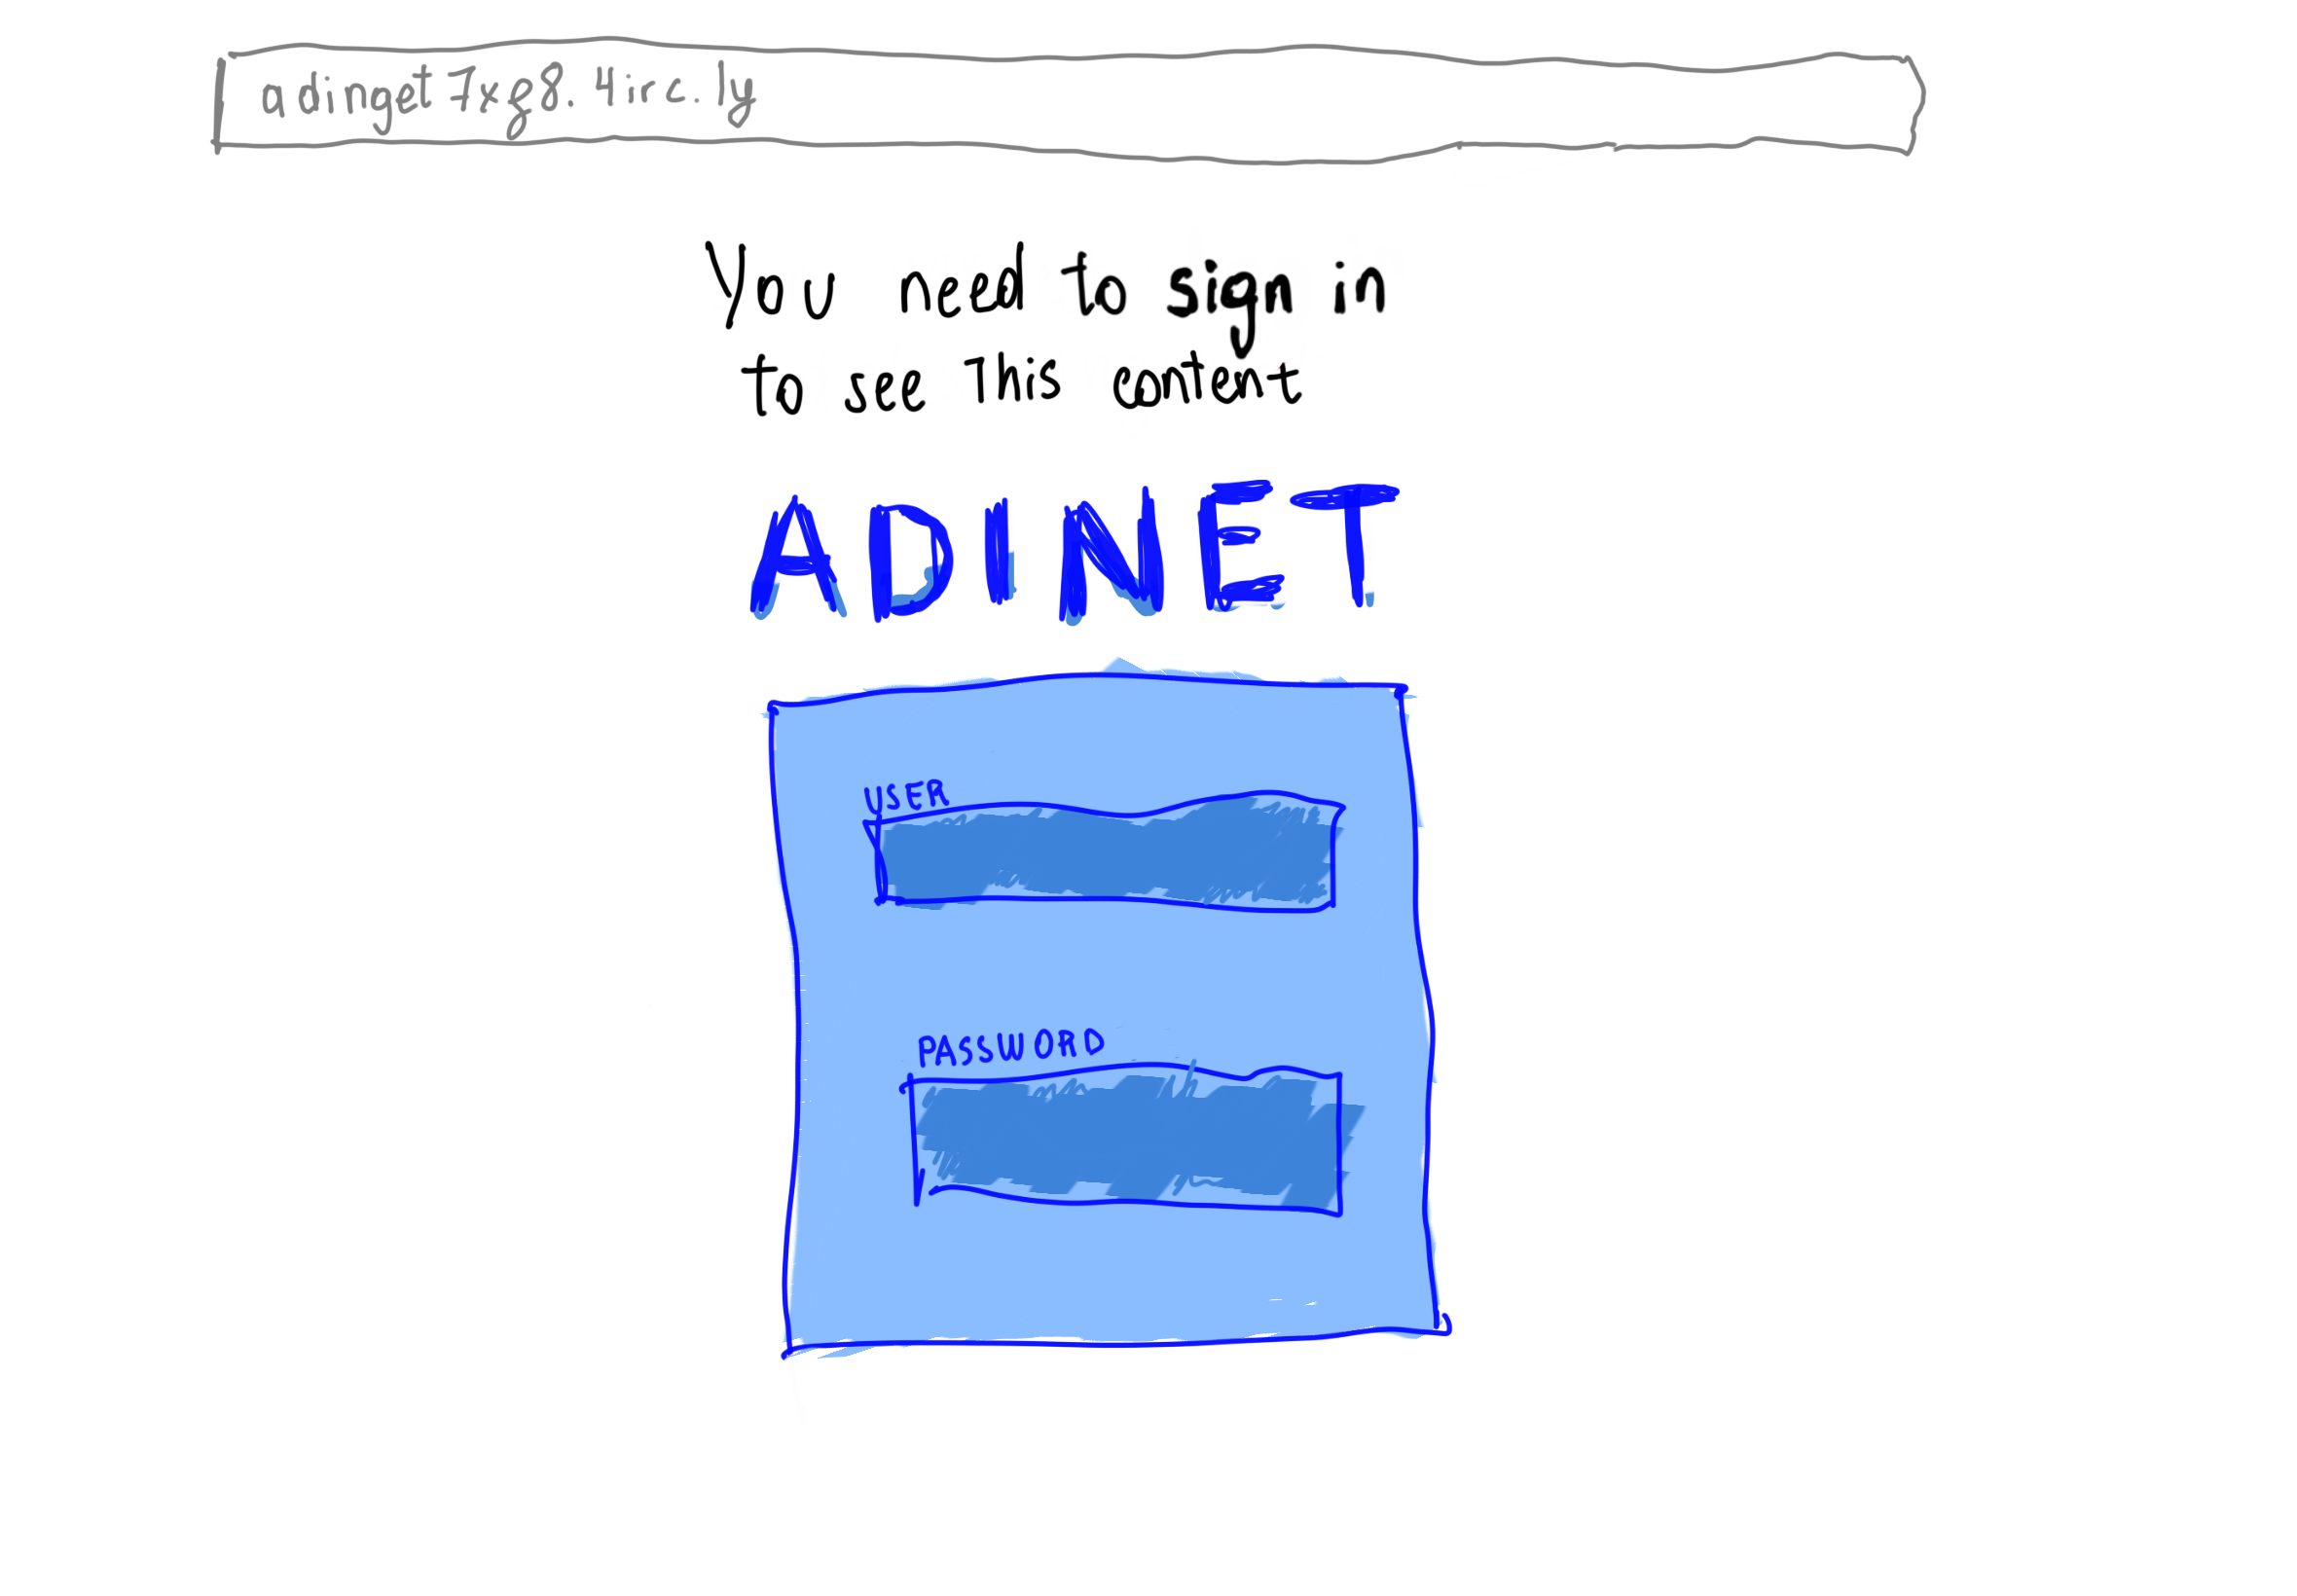 adinget7xf8.4irc.ly
You need to sign in
to see This content
ADINET
USER
PASSWORD